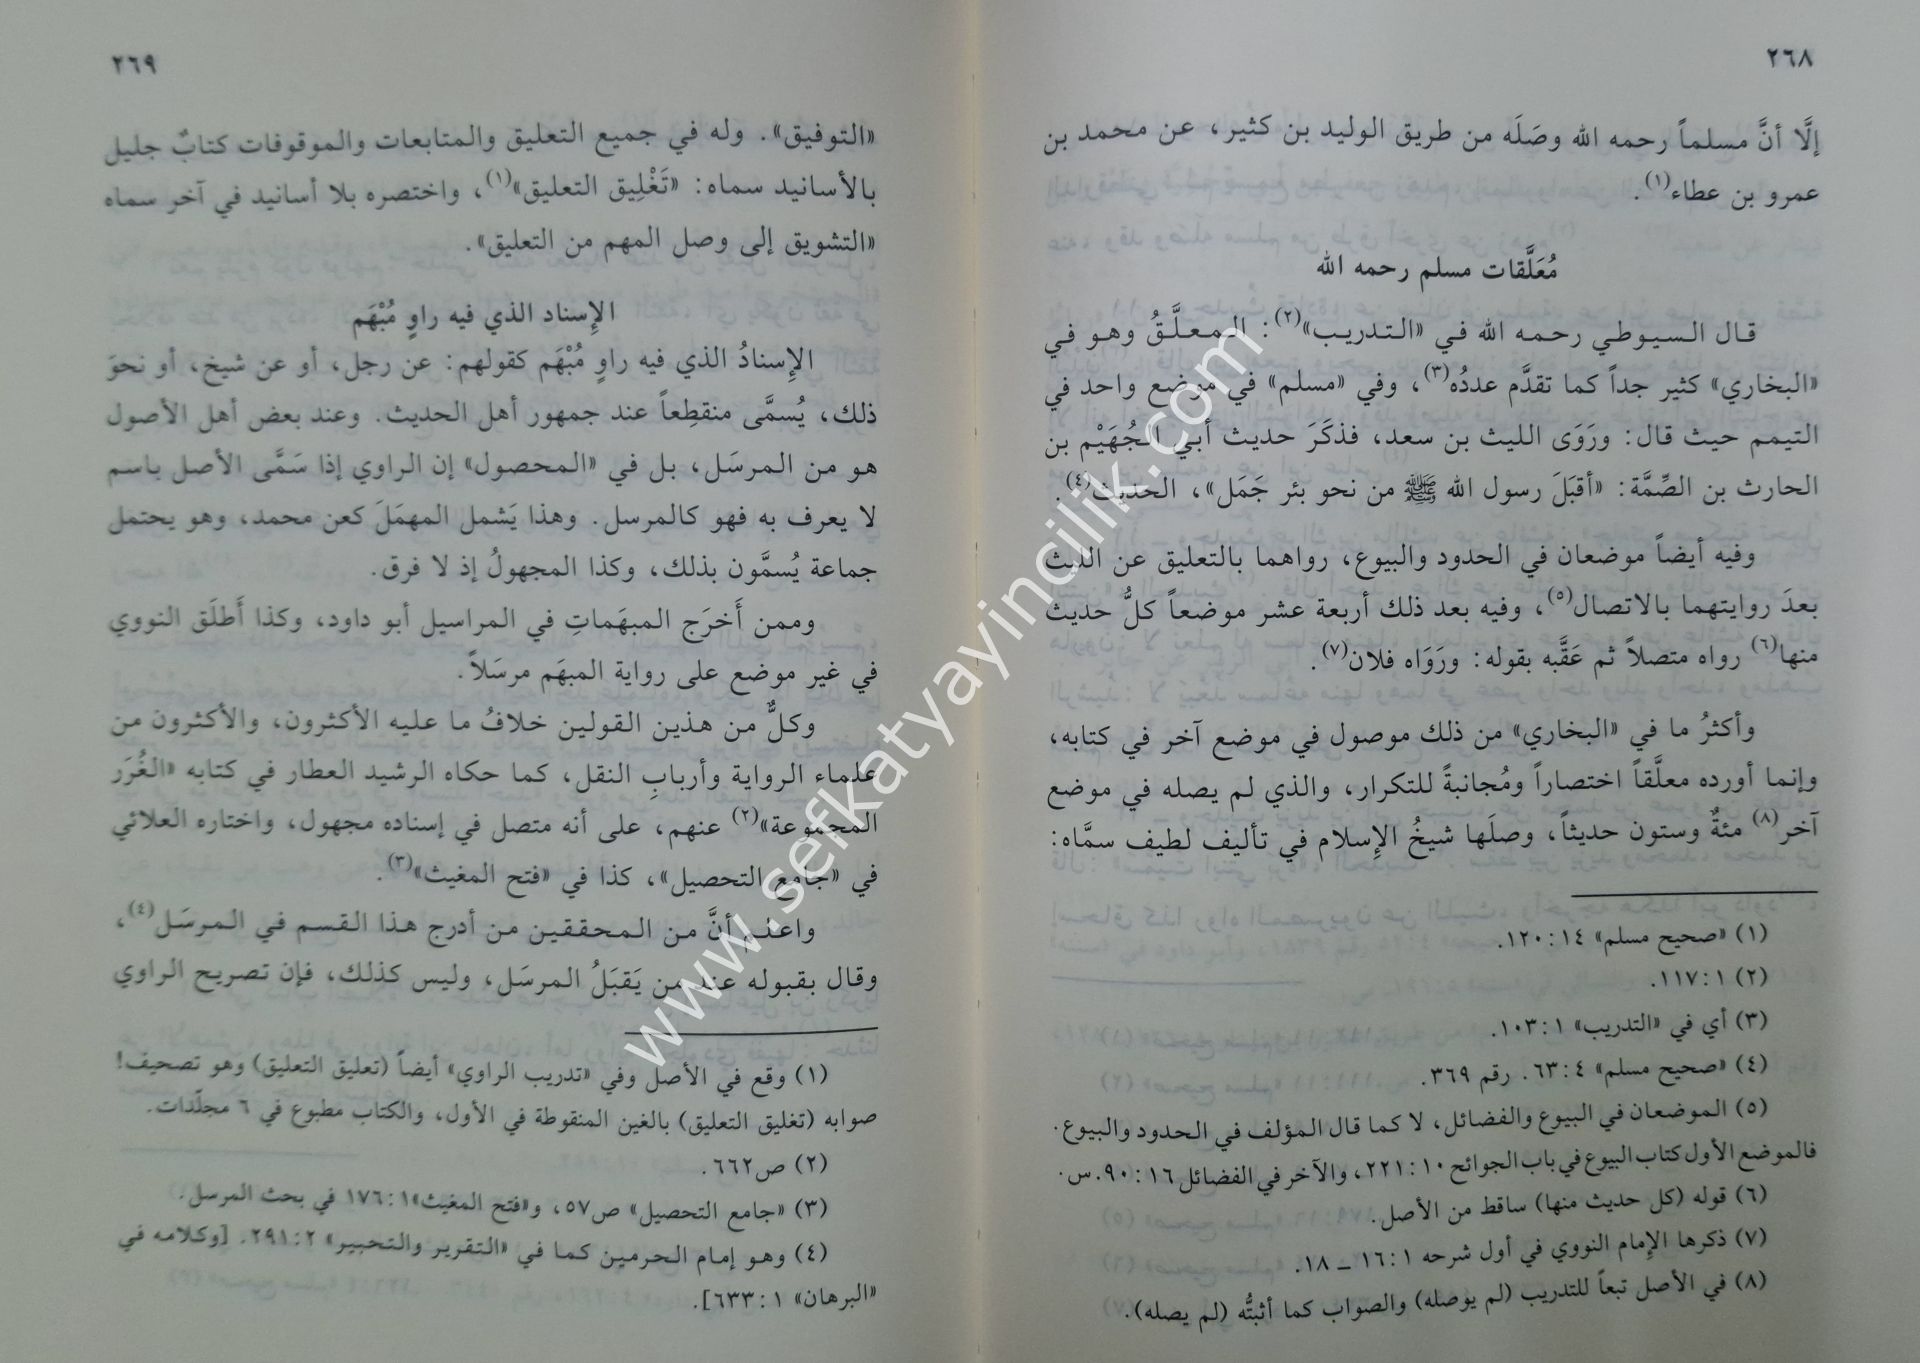 ٢٦٨
إلَّا أنَّ مسلماً رحمه الله وصَلَه من طريق الوليد بن كثير، عن محمد بن
عمرو بن عطاء(١).
مُعَلَّقات مسلم رحمه الله
قال السيوطي رحمه الله في «التدريب»(٢): المعلَّقُ وهو في
«البخاري» كثير جداً كما تقدَّم عددُه(٣)، وفي «مسلم» في موضع واحد في
التيمم حيث قال: ورَوَى الليث بن سعد، فذكَرَ حديث أبي الجُهَيْم بن
الحارث بن الصِّمَّة: «أقبَلَ رسول الله ﷺ من نحو بئر جَمَل»، الحديث(٤).
وفيه أيضاً موضعان في الحدود والبيوع، رواهما بالتعليق عن الليث
بعدَ روايتهما بالاتصال(٥)، وفيه بعد ذلك أربعة عشر موضعاً كلُّ حديث
منها(٦) رواه متصلاً ثم عَقَّبه بقوله: ورَوَاه فلان(٧).
وأكثرُ ما في «البخاري» من ذلك موصول في موضع آخر في كتابه،
وإنما أورده معلَّقاً اختصاراً ومُجانبةً للتكرار، والذي لم يصله في موضع
آخر(٨) مئةٌ وستون حديثاً، وصلَها شيخُ الإسلام في تأليف لطيف سمَّاه:
(١) «صحيح مسلم» ١٤: ١٢٠.
(٢) ١: ١١٧.
(٣) أي في «التدريب» ١: ١٠٣.
(٤) «صحيح مسلم» ٤: ٦٣. رقم ٣٦٩.
(٥) الموضعان في البيوع والفضائل، لا كما قال المؤلف في الحدود والبيوع.
فالموضع الأول كتاب البيوع في باب الجوائح ١٠: ٢٢١، والآخر في الفضائل ١٦: ٩٠. س.
(٦) قوله (كل حديث منها) ساقط من الأصل.
(٧) ذكرها الإمام النووي في أول شرحه ١: ١٦ – ١٨.
(٨) في الأصل تبعاً للتدريب (لم يوصله) والصواب كما أثبتُّه (لم يصله).
٢٦٩
«التوفيق». وله في جميع التعليق والمتابعات والموقوفات كتابٌ جليل
بالأسانيد سماه: «تَغْلِيق التعليق»(١)، واختصره بلا أسانيد في آخر سماه
«التشويق إلى وصل المهم من التعليق».
الإسناد الذي فيه راوٍ مُبْهَم
الإسنادُ الذي فيه راوٍ مُبْهَم كقولهم: عن رجل، أو عن شيخ، أو نحوَ
ذلك، يُسمَّى منقطِعاً عند جمهور أهل الحديث. وعند بعض أهل الأصول
هو من المرسَل، بل في «المحصول» إن الراوي إذا سَمَّى الأصل باسم
لا يعرف به فهو كالمرسل. وهذا يَشمل المهمَلَ كعن محمد، وهو يحتمل
جماعة يُسمَّون بذلك، وكذا المجهولُ إذ لا فرق.
وممن أَخرَج المبهَماتِ في المراسيل أبو داود، وكذا أَطلَق النووي
في غير موضع على رواية المبهَم مرسَلاً.
وكلٌّ من هذين القولين خلافُ ما عليه الأكثرون، والأكثرون من
علماء الرواية وأربابِ النقل، كما حكاه الرشيد العطار في كتابه «الغُرَر
المجموعة»(٢) عنهم، على أنه متصل في إسناده مجهول، واختاره العلائي
في «جامع التحصيل»، كذا في «فتح المغيث»(٣).
واعلم أنَّ من المحققين من أدرج هذا القسم في المرسَل(٤)،
وقال بقبوله عند من يَقبَلُ المرسَل، وليس كذلك، فإن تصريح الراوي
(١) وقع في الأصل وفي «تدريب الراوي» أيضاً (تعليق التعليق) وهو تصحيف!
صوابه (تغليق التعليق) بالغين المنقوطة في الأول، والكتاب مطبوع في ٦ مجلّدات.
(٢) ص٦٦٢.
(٣) «جامع التحصيل» ص٥٧، و«فتح المغيث» ١: ١٧٦ في بحث المرسل.
(٤) وهو إمام الحرمين كما في «التقرير والتحبير» ٢: ٢٩١. [وكلامه في
«البرهان» ١: ٦٣٣].
www.sefkatyayincilik.com